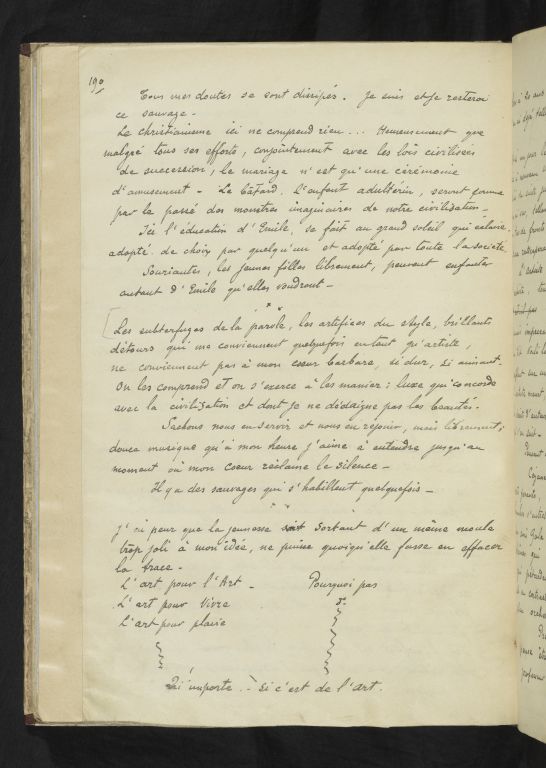 190
Tous mes doutes se sont dissipés. Je suis et je resterai
ce sauvage -
Le christianisme ici ne comprend rien... Heureusement que
malgré tous ses efforts, conjointement avec les lois civilisées
de succession, le mariage n'est qu'une cérémonie
d'amusement - Le bâtard, l'enfant adultérin, seront comme
par le passé des monstres imaginaires de notre civilisation -
Ici l'education d'Emile, se fait au grand soleil qui eclaire,
adopté de choix par quelqu'un et adopté par toute la societé
Souriantes, les jeunes filles librement, peuvent enfanter
autant d'Emile qu'elles voudront -
* *
[Les subterfuges de la parole, les artifices du style, brillants
détours qui me conviennent quelquefois en tant qu'artiste,
ne conviennent pas à mon coeur barbare, si dur, si aimant.
On les comprend et on s'exerce à les manier: luxe qui concorde
avec la civilisation et dont je ne dédaigne pas les beautés.
Sachons nous en servir et nous en rejouir, mais librement;
douce musique qu'à mon heure j'aime à entendre jusqu'au
moment où mon coeur réclame le silence -
Il y a des sauvages qui s'habillent quelquefois -
* *
J'ai peur que la jeunesse sortant d'un même moule
trop joli à mon idée, ne puisse quoiqu'elle fasse en effacer
la trace -
L'art pour l'Art - Pourquoi pas
L'art pour Vivre d°-
L'art pour plaire
Qu'importe.- Si c'est de l'art.